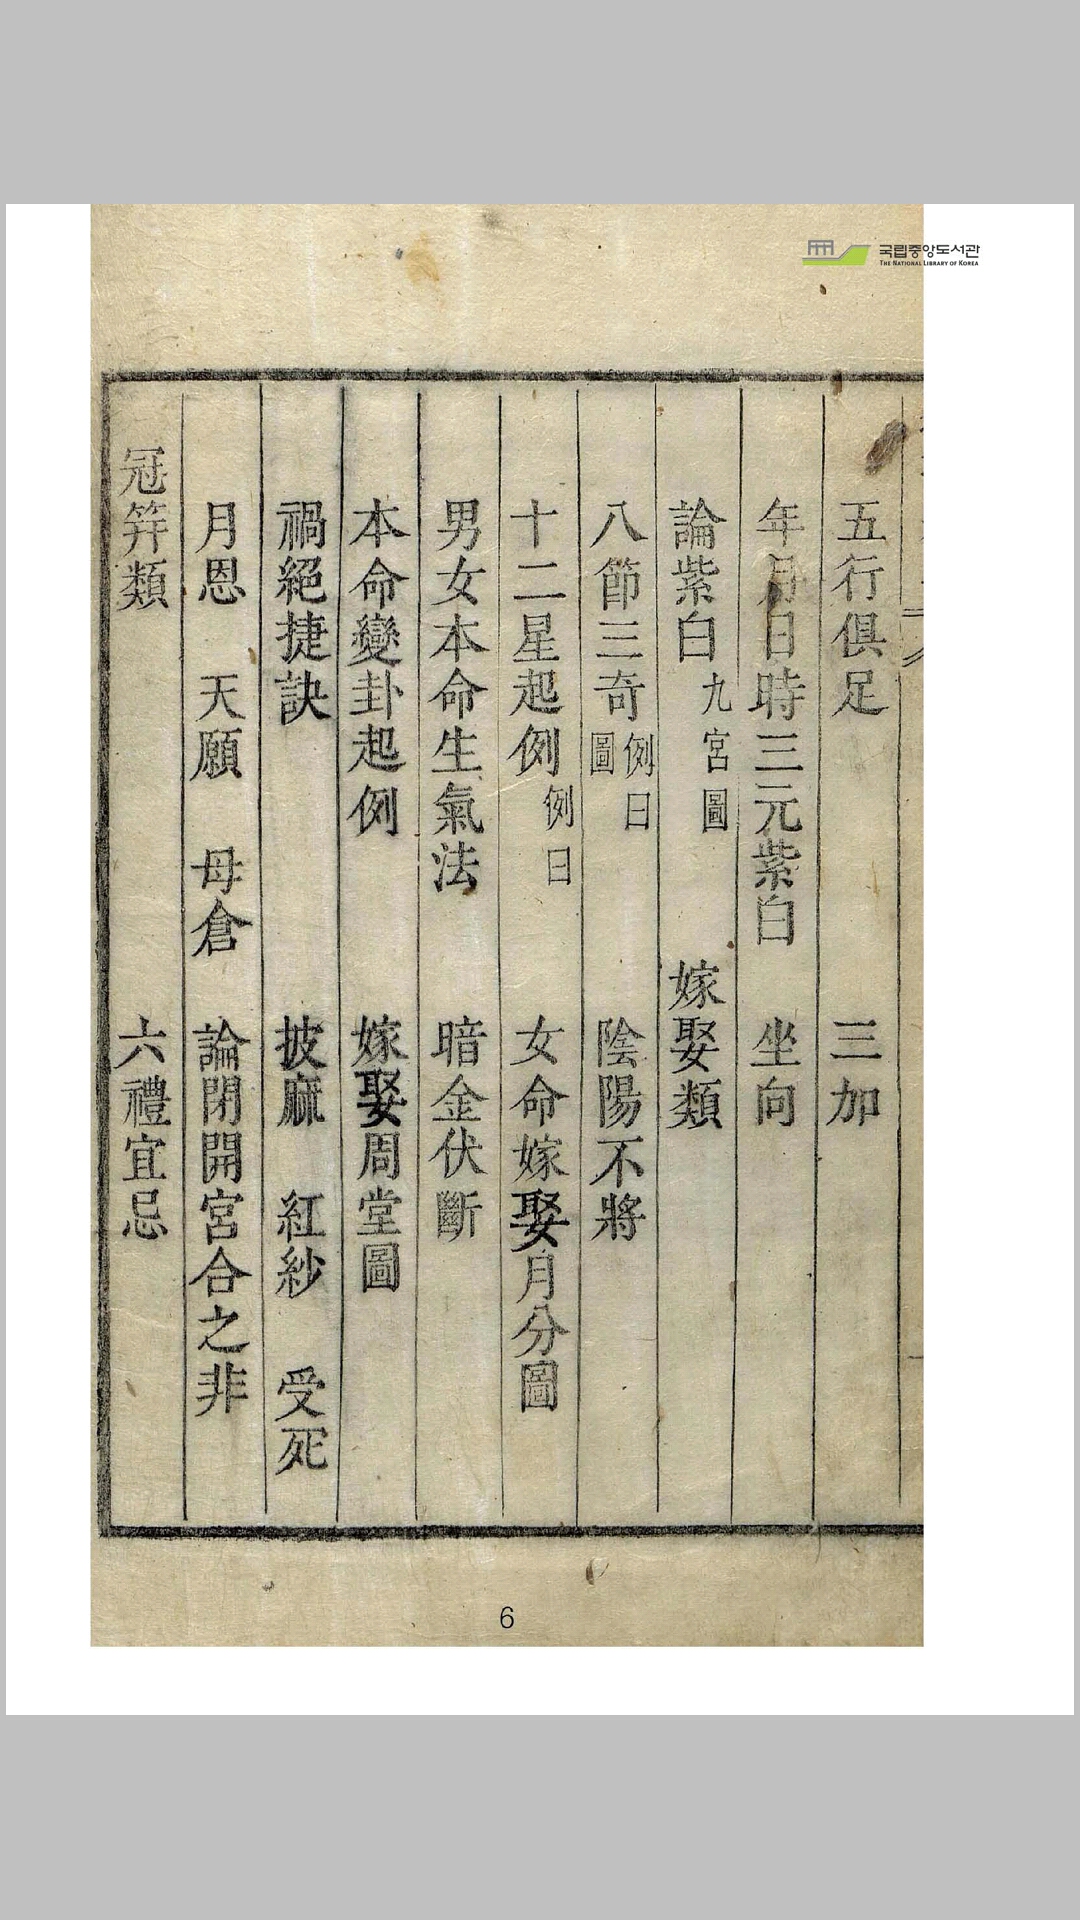 국립중앙도서관
THE NATIONAL LIBRARY OF KOREA
五行俱足
年月日時三元紫白
論紫白 九宮圖
八節三奇 例日圖
十二星起例 例日
男女本命生氣法
本命變卦起例
禍絕捷訣
月恩 天願 母倉
冠筓類
三加
坐向
嫁娶類
陰陽不將
女命嫁娶月分圖
暗金伏斷
嫁娶周堂圖
披麻 紅紗 受死
論閉開宮合之非
六禮宜忌
6